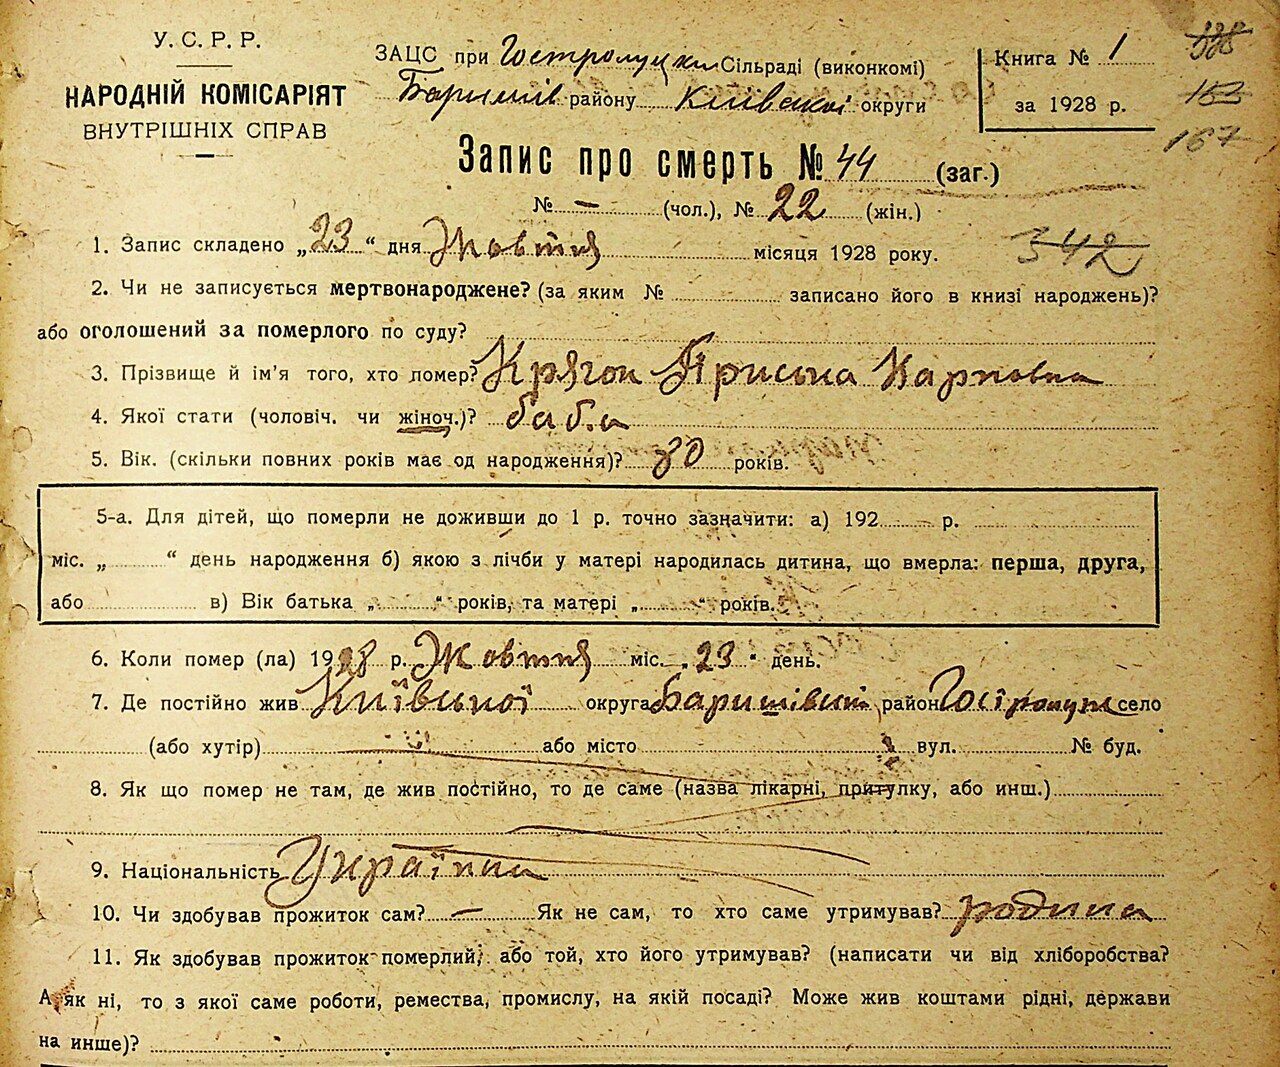 У. С. Р. Р.
НАРОДНІЙ КОМІСАРІЯТ
ВНУТРІШНІХ СПРАВ
ЗАЦС при Гостролуцькім Сільраді (виконкомі)
Баришів району Київської округи
Книга № 1
за 1928 р.
338
153
167
Запис про смерть № 44 (заг.)
№ — (чол.), № 22 (жін.)
1. Запис складено „23“ дня Жовтня місяця 1928 року.
342
2. Чи не записується мертвонароджене? (за яким № записано його в книзі народжень)?
або оголошений за померлого по суду?
3. Прізвище й ім'я того, хто помер? Крягон Пріська Карповна
4. Якої стати (чоловіч. чи жіноч.)? баба
5. Вік. (скільки повних років має од народження)? 80 років.
5-а. Для дітей, що померли не доживши до 1 р. точно зазначити: а) 192 р.
міс. „ “ день народження б) якою з лічби у матері народилась дитина, що вмерла: перша, друга,
або в) Вік батька „ “ років, та матері „ “ років.
6. Коли помер (ла) 1928 р. Жовтня міс. „23“ день.
7. Де постійно жив Київської округа Баришівський район Гостролуч село
(або хутір) або місто вул. № буд.
8. Як що помер не там, де жив постійно, то де саме (назва лікарні, притулку, або инш.)
9. Національність Українка
10. Чи здобував прожиток сам? — Як не сам, то хто саме утримував? родина
11. Як здобував прожиток померлий, або той, хто його утримував? (написати чи від хліборобства?
А як ні, то з якої саме роботи, ремества, промислу, на якій посаді? Може жив коштами рідні, держави
на инше)?